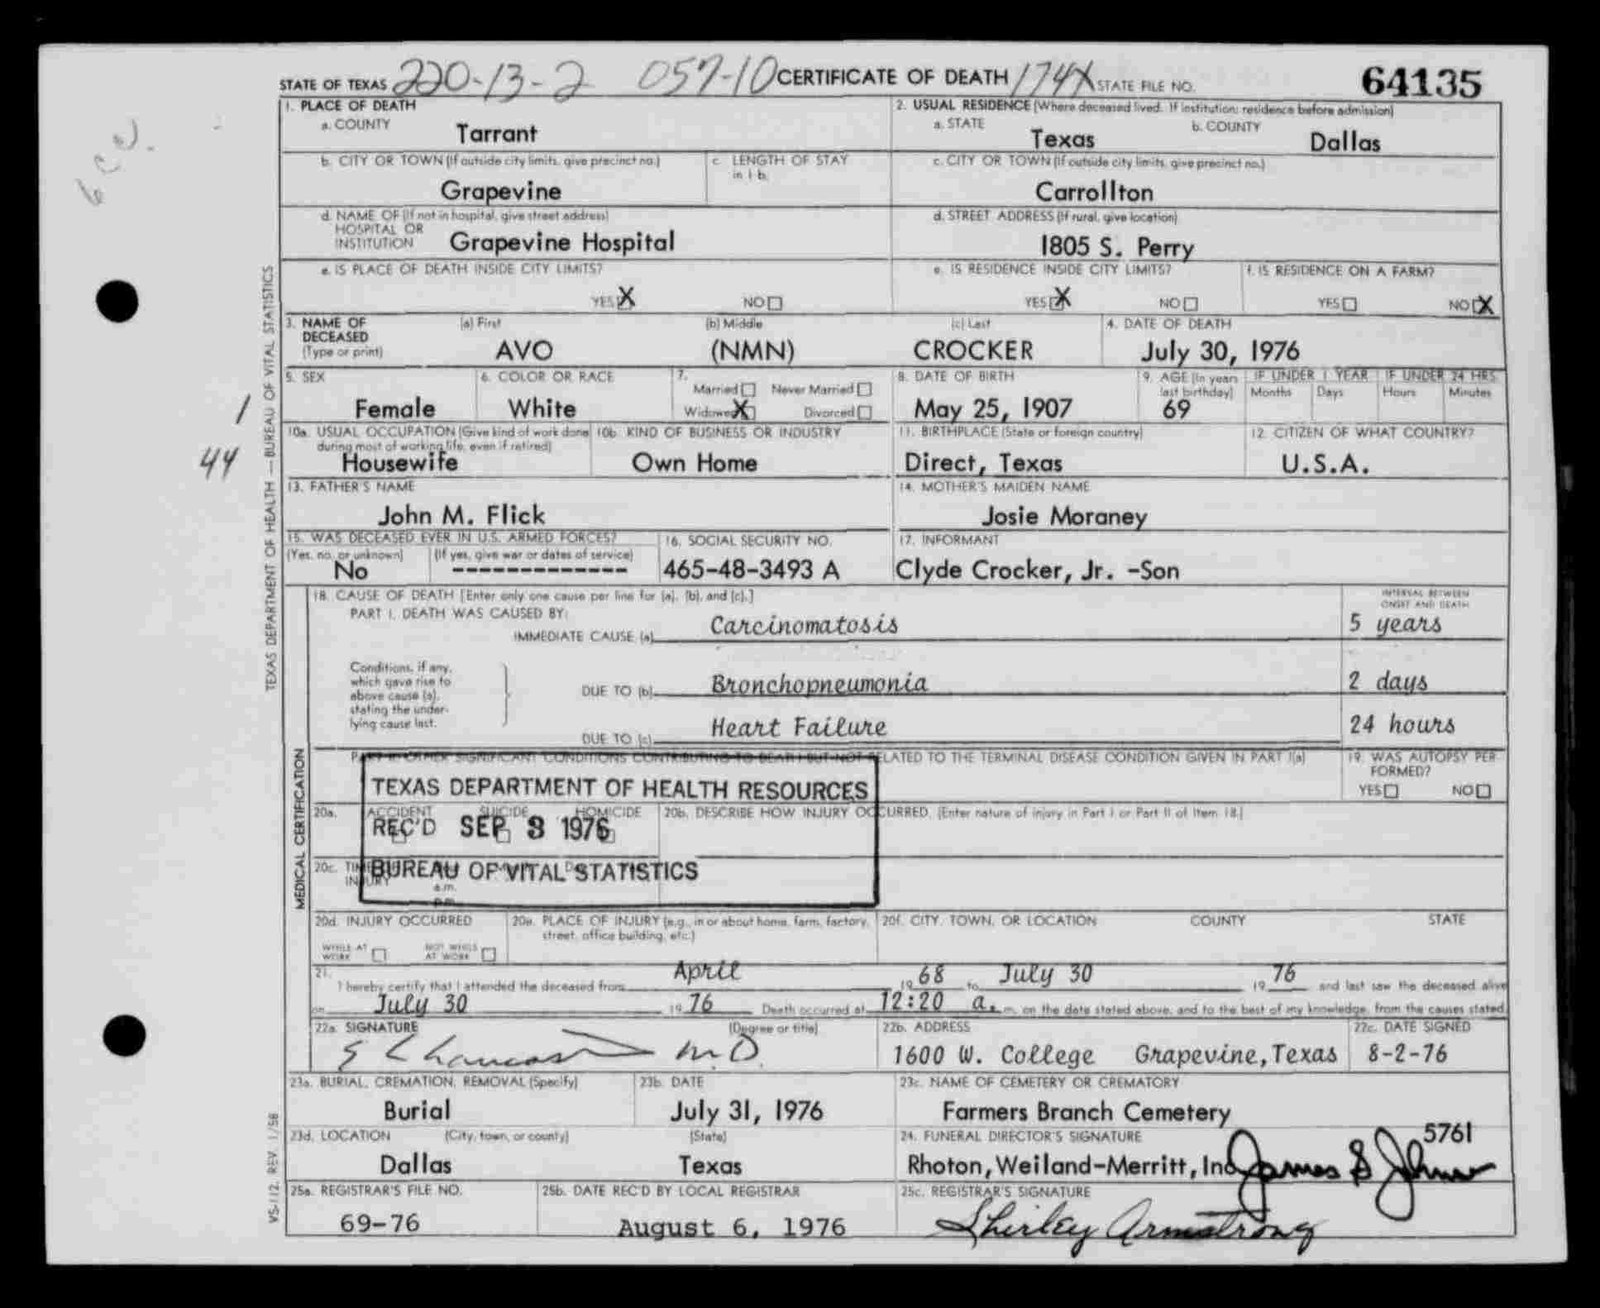 STATE OF TEXAS 220-13-2 057-10 CERTIFICATE OF DEATH 174X STATE FILE NO. 64135
1. PLACE OF DEATH
a. COUNTY Tarrant
2. USUAL RESIDENCE (Where deceased lived. If institution: residence before admission)
a. STATE Texas b. COUNTY Dallas
b. CITY OR TOWN (If outside city limits, give precinct no.) Grapevine
c. LENGTH OF STAY in 1 b.
c. CITY OR TOWN (If outside city limits, give precinct no.) Carrollton
d. NAME OF (If not in hospital, give street address) HOSPITAL OR INSTITUTION Grapevine Hospital
d. STREET ADDRESS (If rural, give location) 1805 S. Perry
e. IS PLACE OF DEATH INSIDE CITY LIMITS?
YES X NO
e. IS RESIDENCE INSIDE CITY LIMITS?
YES X NO
f. IS RESIDENCE ON A FARM?
YES NO X
3. NAME OF DECEASED (Type or print)
(a) First AVO (b) Middle (NMN) (c) Last CROCKER
4. DATE OF DEATH July 30, 1976
5. SEX Female
6. COLOR OR RACE White
7. Married Never Married
Widowed X Divorced
8. DATE OF BIRTH May 25, 1907
9. AGE (In years last birthday) 69
IF UNDER 1 YEAR Months Days
IF UNDER 24 HRS. Hours Minutes
10a. USUAL OCCUPATION (Give kind of work done during most of working life, even if retired) Housewife
10b. KIND OF BUSINESS OR INDUSTRY Own Home
11. BIRTHPLACE (State or foreign country) Direct, Texas
12. CITIZEN OF WHAT COUNTRY? U.S.A.
13. FATHER'S NAME John M. Flick
14. MOTHER'S MAIDEN NAME Josie Moraney
15. WAS DECEASED EVER IN U.S. ARMED FORCES?
(Yes, no, or unknown) No (If yes, give war or dates of service) -------------
16. SOCIAL SECURITY NO. 465-48-3493 A
17. INFORMANT Clyde Crocker, Jr. -Son
18. CAUSE OF DEATH [Enter only one cause per line for (a), (b), and (c).]
INTERVAL BETWEEN ONSET AND DEATH
PART I. DEATH WAS CAUSED BY:
IMMEDIATE CAUSE (a) Carcinomatosis 5 years
Conditions, if any, which gave rise to above cause (a), stating the underlying cause last.
DUE TO (b) Bronchopneumonia 2 days
DUE TO (c) Heart Failure 24 hours
PART II. OTHER SIGNIFICANT CONDITIONS CONTRIBUTING TO DEATH BUT NOT RELATED TO THE TERMINAL DISEASE CONDITION GIVEN IN PART I(a)
19. WAS AUTOPSY PERFORMED?
YES NO
TEXAS DEPARTMENT OF HEALTH RESOURCES
REC'D SEP 3 1976
BUREAU OF VITAL STATISTICS
20a. ACCIDENT SUICIDE HOMICIDE
20b. DESCRIBE HOW INJURY OCCURRED. (Enter nature of injury in Part I or Part II of Item 18.)
20c. TIME INJURY
a.m.
p.m.
20d. INJURY OCCURRED
WHILE AT WORK NOT WHILE AT WORK
20e. PLACE OF INJURY (e.g., in or about home, farm, factory, street, office building, etc.)
20f. CITY, TOWN, OR LOCATION COUNTY STATE
21. I hereby certify that I attended the deceased from April 19 68 to July 30 19 76 and last saw the deceased alive
on July 30 19 76 Death occurred at 12:20 a. m. on the date stated above, and to the best of my knowledge, from the causes stated.
22a. SIGNATURE (Degree or title) M.D.
22b. ADDRESS 1600 W. College Grapevine, Texas
22c. DATE SIGNED 8-2-76
23a. BURIAL, CREMATION, REMOVAL (Specify) Burial
23b. DATE July 31, 1976
23c. NAME OF CEMETERY OR CREMATORY Farmers Branch Cemetery
23d. LOCATION (City, town, or county) Dallas (State) Texas
24. FUNERAL DIRECTOR'S SIGNATURE 5761
Rhoton, Weiland-Merritt, Inc. James
25a. REGISTRAR'S FILE NO. 69-76
25b. DATE REC'D BY LOCAL REGISTRAR August 6, 1976
25c. REGISTRAR'S SIGNATURE Shirley Armstrong
TEXAS DEPARTMENT OF HEALTH — BUREAU OF VITAL STATISTICS
MEDICAL CERTIFICATION
VS-112, REV. 1/58
1
44